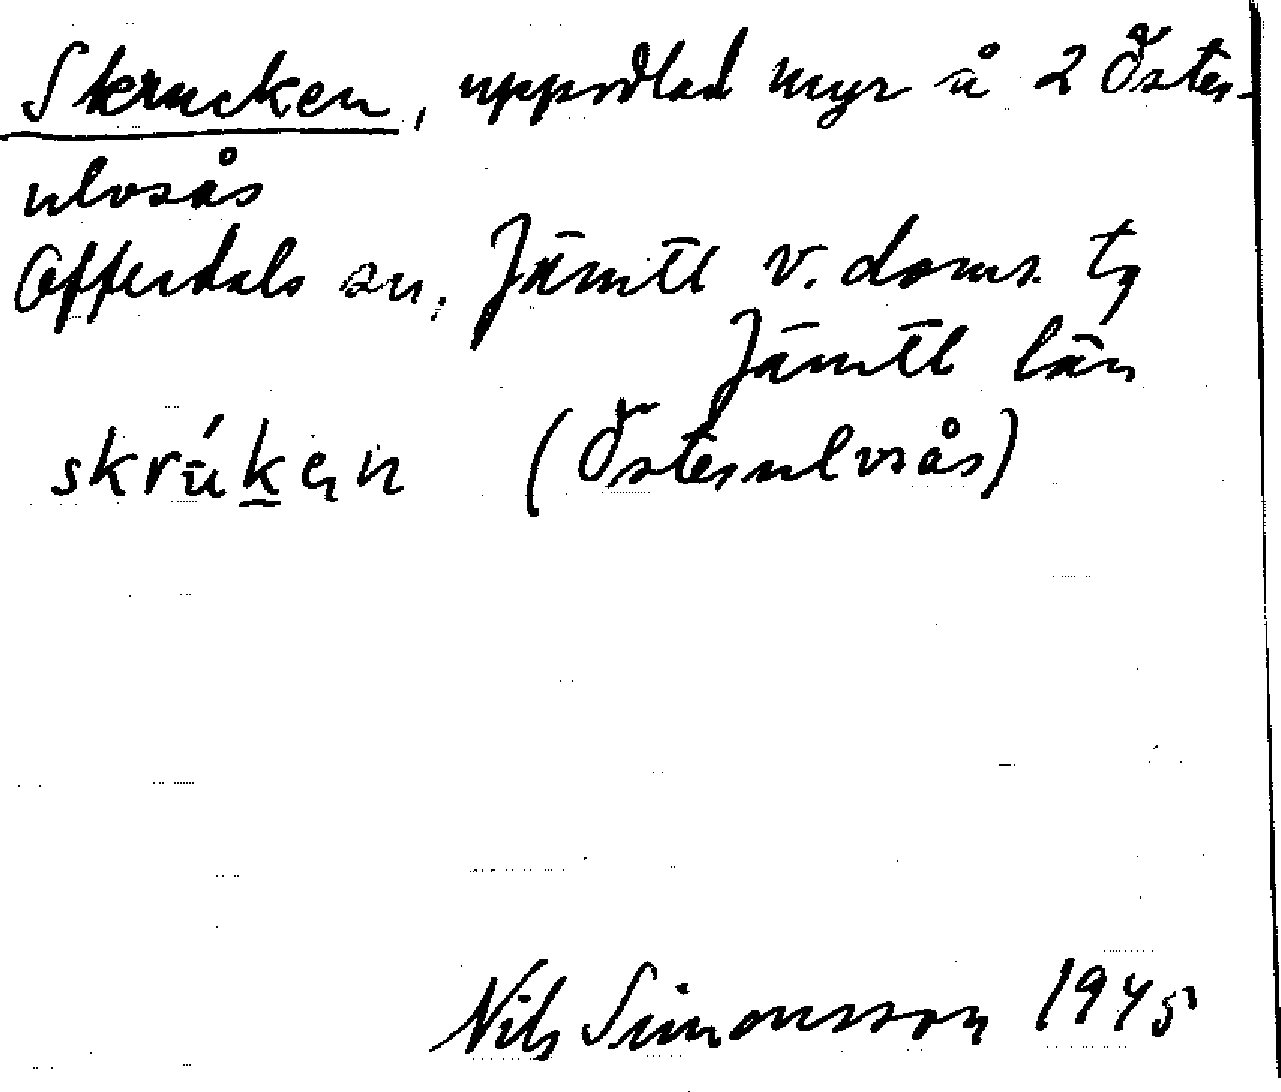 Skrucken, uppodlad myr å 2 Öster-
ulvsås
Offerdals sn, Jämtl v. doms. tg
Jämtl län
skrúken (Östernulvsås)
Nils Simonsson 1945